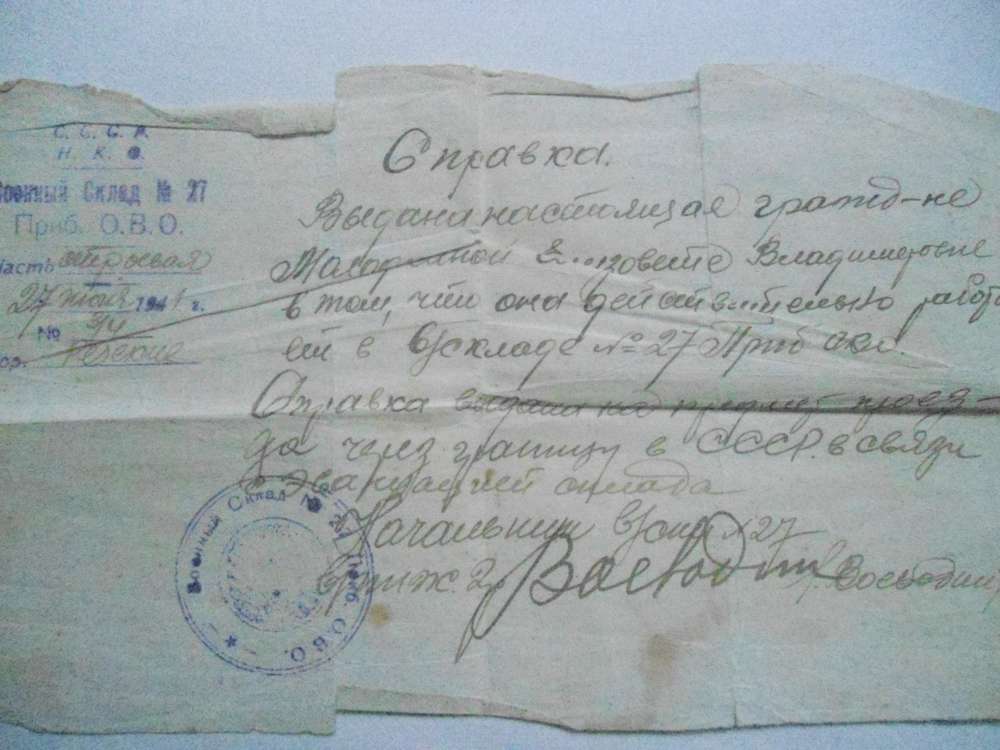 С. С. С. Р.
Н. К. О.
Военный Склад № 27
Приб. О.В.О.
Часть строевая
27 июня 1941 г.
№
гор.
Справка.
Выдана настоящая гражд-не
Владимировне
в том, что она действительно работ
ет в в/складе № 27 Приб ОВО.
Справка выдана на предмет проез-
да через границу в СССР в связи
с эвакуацией склада
Начальник в/скл № 27
Военный Склад № 27 Приб. О.В.О.